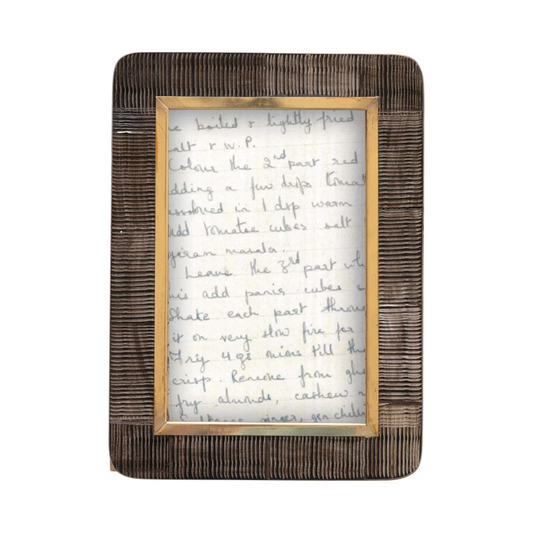 be boiled & lightly fried
alt & W.P.
Colour the 2nd part red
dding a few drops tomat
issolved in 1 dsp warm
add tomatoe cubes salt
garam masala.
Leave the 3rd part wh
his add panir cubes
Shake each part throu
it on very slow fire for
Fry 4 oz onions till th
crisp. Remove from gh
fry almonds, cashew n
ginger, grn chilli